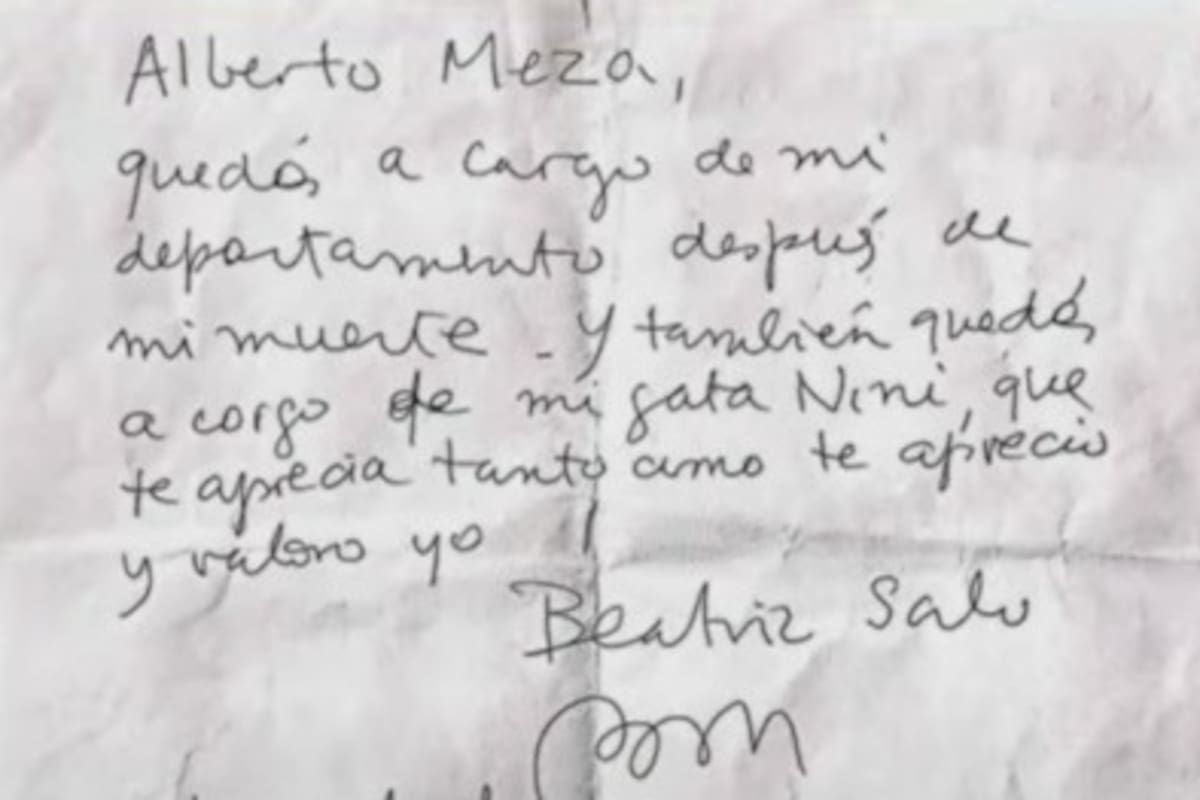 Alberto Meza,
quedás a cargo de mi
departamento después de
mi muerte - Y también quedás
a cargo de mi gata Nini, que
te aprecia tanto como te aprecio
y valoro yo
Beatriz Salo